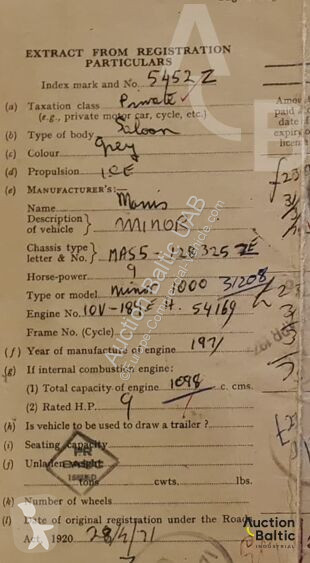 EXTRACT FROM REGISTRATION
PARTICULARS
Index mark and No. 5452 Z
(a) Taxation class Private
(e.g., private motor car, cycle, etc.)
(b) Type of body Saloon
(c) Colour Grey
(d) Propulsion ICE
(e) MANUFACTURER'S:—
Name Morris
Description of vehicle } MINOR
Chassis type letter & No. } MAS5
Horse-power 9
Type or model Minor 1000 31208
Engine No. 54169
Frame No. (Cycle)
(f) Year of manufacture of engine 1971
(g) If internal combustion engine:
(1) Total capacity of engine 1098 c. cms.
(2) Rated H.P. 9
(h) Is vehicle to be used to draw a trailer?
(i) Seating capacity
(j) Unladen weight
tons cwts. lbs.
(k) Number of wheels
(l) Date of original registration under the Roads
Act, 1920 28/4/71
Auction Baltic UAB
Auction
Baltic
INDUSTRIAL